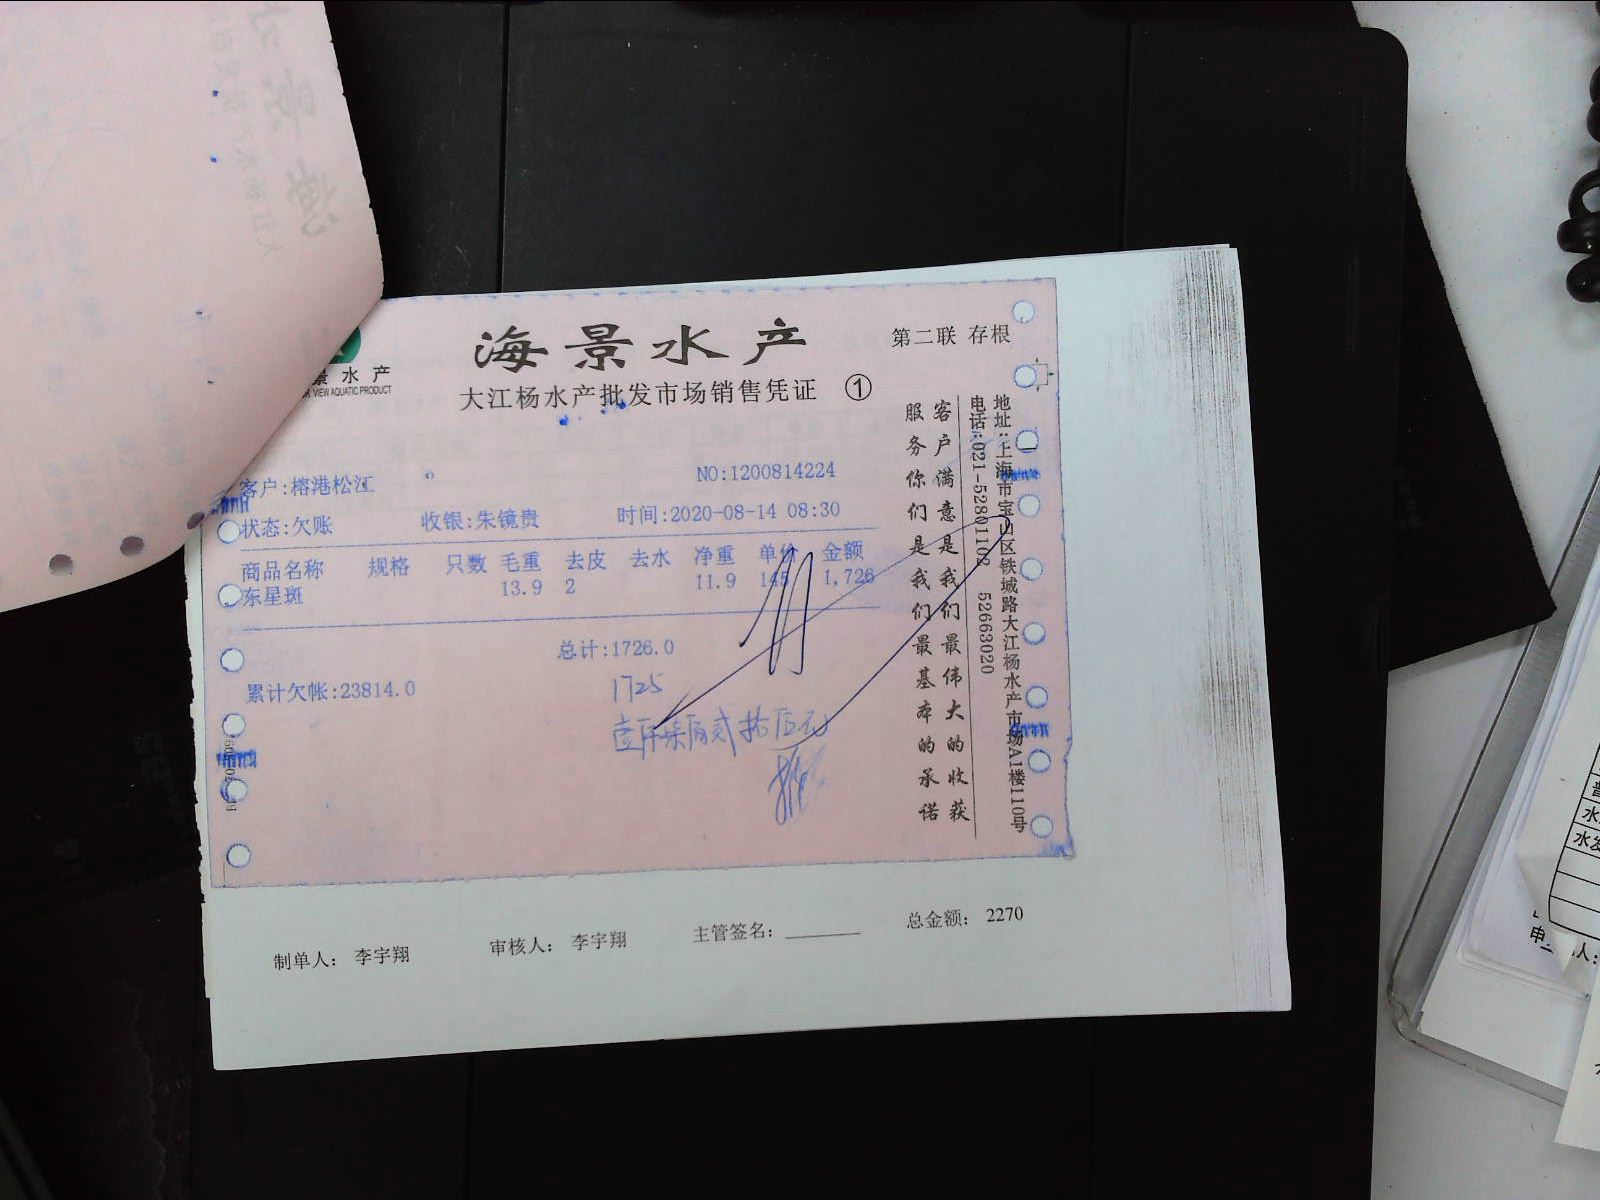 海景水产
第二联 存根
景水产
VIEW AQUATIC PRODUCT
大江杨水产批发市场销售凭证 ①
客户:榕港松江
NO:1200814224
状态:欠账 收银:朱镜贵 时间:2020-08-14 08:30
商品名称 规格 只数 毛重 去皮 去水 净重 单价 金额
东星斑 13.9 2 11.9 145 1,726
总计:1726.0
累计欠帐:23814.0
1725
壹仟柒佰贰拾伍元
客户满意是我们最伟大的收获
服务你们是我们最基本的承诺
地址:上海市宝山区铁城路大江杨水产市场A1楼110号
电话:021-52801102 52663020
制单人: 李宇翔 审核人: 李宇翔 主管签名: 总金额: 2270